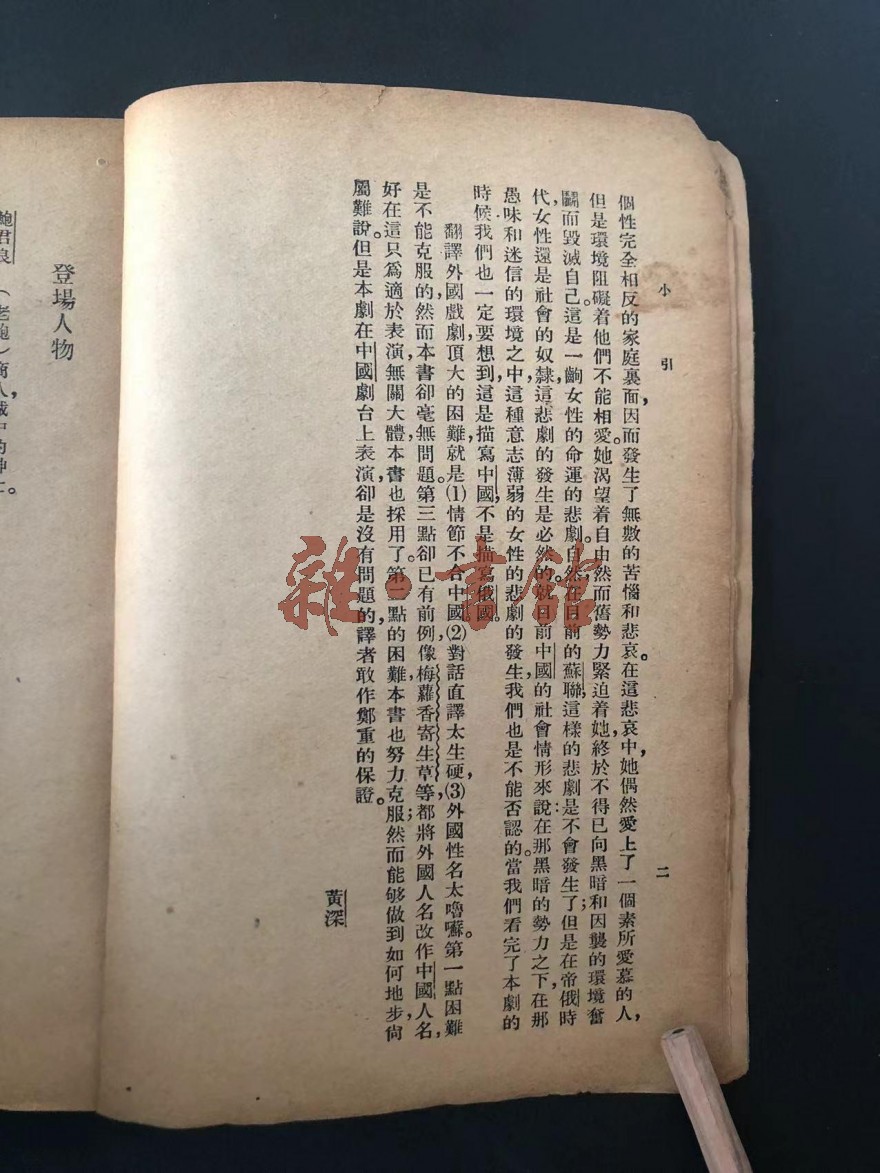 小引
二
個性完全相反的家庭裏面，因而發生了無數的苦惱和悲哀。在這悲哀中，她偶然愛上了一個素所愛慕的人，
但是環境阻礙着他們不能相愛。她渴望着自由然而舊勢力緊迫着她，終於不得已向黑暗和因襲的環境奮
鬭而毀滅自己。這是一齣女性的命運的悲劇。自然，在目前的蘇聯，這樣的悲劇是不會發生了；但是在帝俄時
代，女性還是社會的奴隸，這悲劇的發生是必然的。就目前中國的社會情形來說：在那黑暗的勢力之下，在那
愚味和迷信的環境之中，這種意志薄弱的女性的悲劇的發生，我們也是不能否認的。當我們看完了本劇的
時候，我們也一定要想到，這是描寫中國，不是描寫俄國。
翻譯外國戲劇，頂大的困難就是：(1)情節不合中國，(2)對話直譯太生硬，(3)外國性名太嚕囌。第一點困難
是不能克服的，然而本書卻毫無問題。第三點卻已有前例，像梅蘿香寄生草等，都將外國人名改作中國人名，
好在這只爲適於表演，無關大體，本書也採用了。第二點的困難，本書也努力克服；然而能够做到如何地步，尙
屬難說。但是本劇在中國劇台上表演，卻是沒有問題的，譯者敢作鄭重的保證。
黃深
登場人物
鮑君良（老鮑）商人，
雜·書館